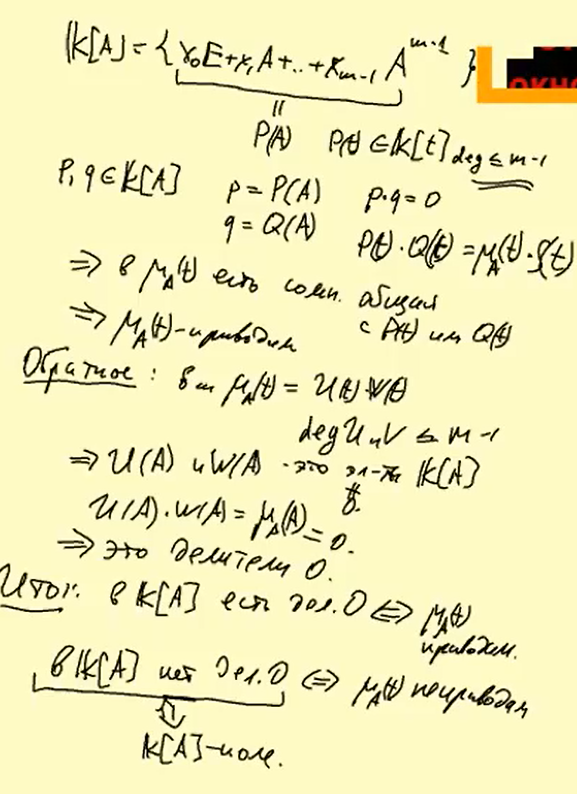 𝕂[A] = { γ₀E + γ₁A + .. + γₘ₋₁ A^{m-1} }
ОКНО
P(A) P(t) ∈ 𝕂[t] deg ≤ m-1
p, q ∈ 𝕂[A] p = P(A) p·q = 0
q = Q(A) P(t)·Q(t) = μ_A(t)·S(t)
⇒ в μ_A(t) есть сомн. общий
с P(t) или Q(t)
⇒ μ_A(t) - приводим
Обратное: μ_A(t) = U(t) W(t)
deg U и V ≤ m-1
⇒ U(A) и W(A) - это эл-ты 𝕂[A]
≠ 0.
U(A)·W(A) = μ_A(A) = 0.
⇒ это делители 0.
Итог: в 𝕂[A] есть дел. 0 ⇔ μ_A(t)
приводим.
в 𝕂[A] нет дел. 0 ⇔ μ_A(t) неприводим
⇕
𝕂[A] - поле.